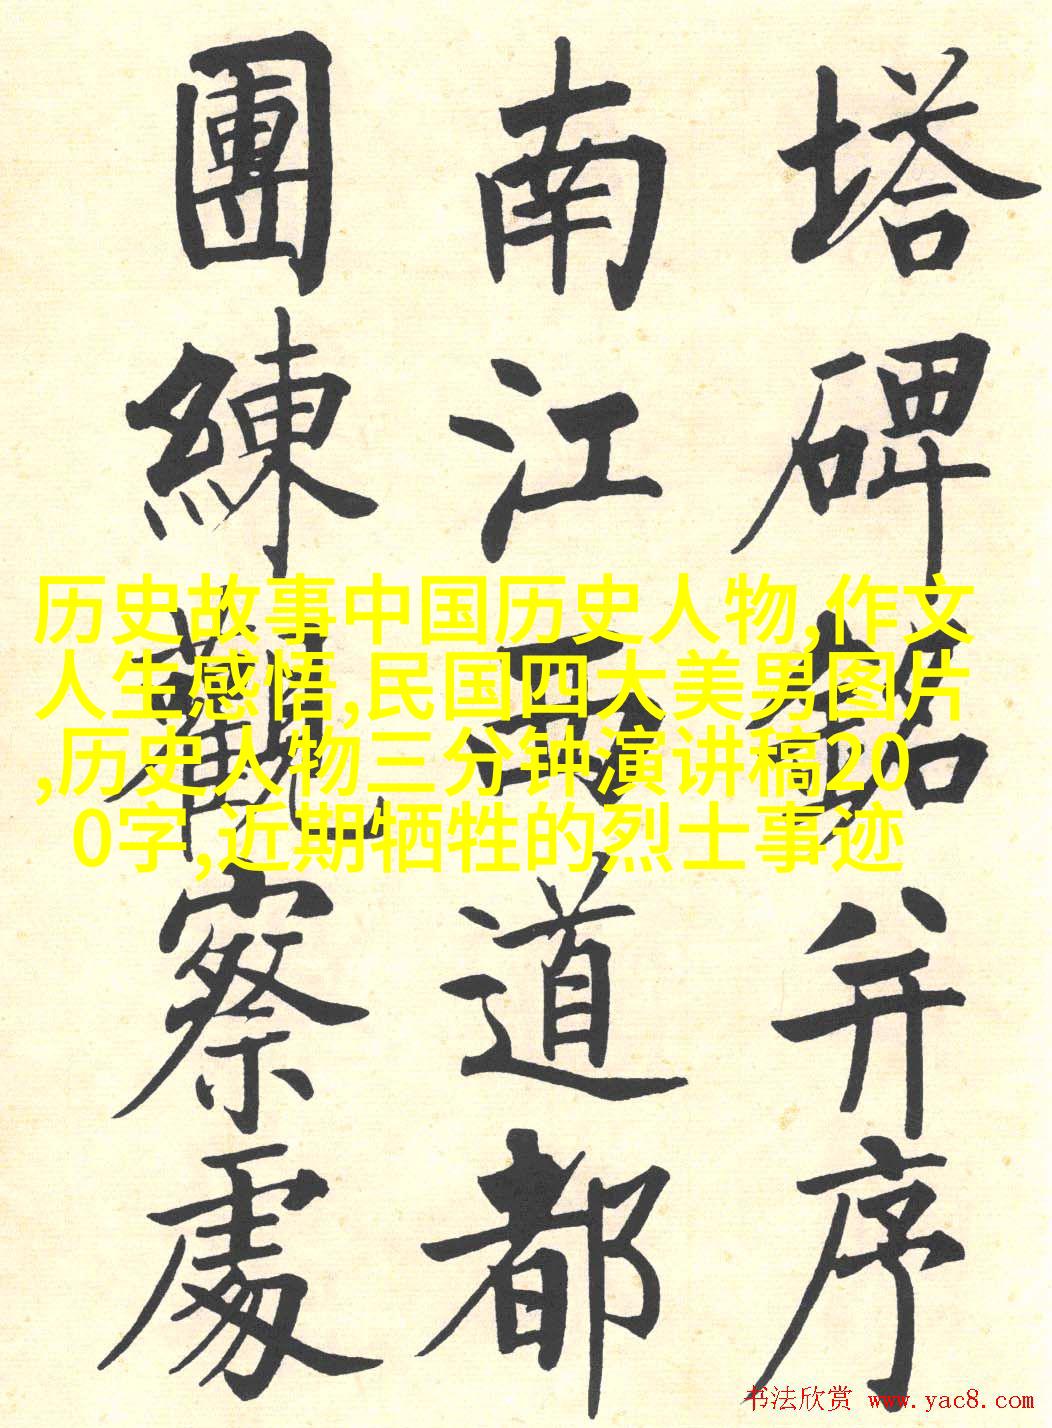 塔碑銘并序
南江西道都
團練觀察處
历史故事中国历史人物,作文
人生感悟,民国四大美男图片
,历史人物三分钟演讲稿20
0字,近期牺牲的烈士事迹
书法欣赏 www.yac8.com